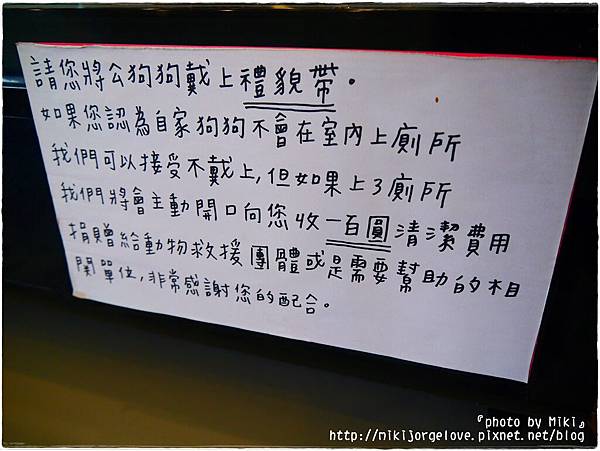 請您將公狗狗戴上禮貌帶。
如果您認為自家狗狗不會在室內上廁所
我們可以接受不戴上,但如果上3廁所
我們將會主動開口向您收一百圓清潔費用
捐贈給動物救援團體或是需要幫助的相
關單位,非常感謝您的配合。
『photo by Miki』
http://mikijorgelove.pixnet.net/blog